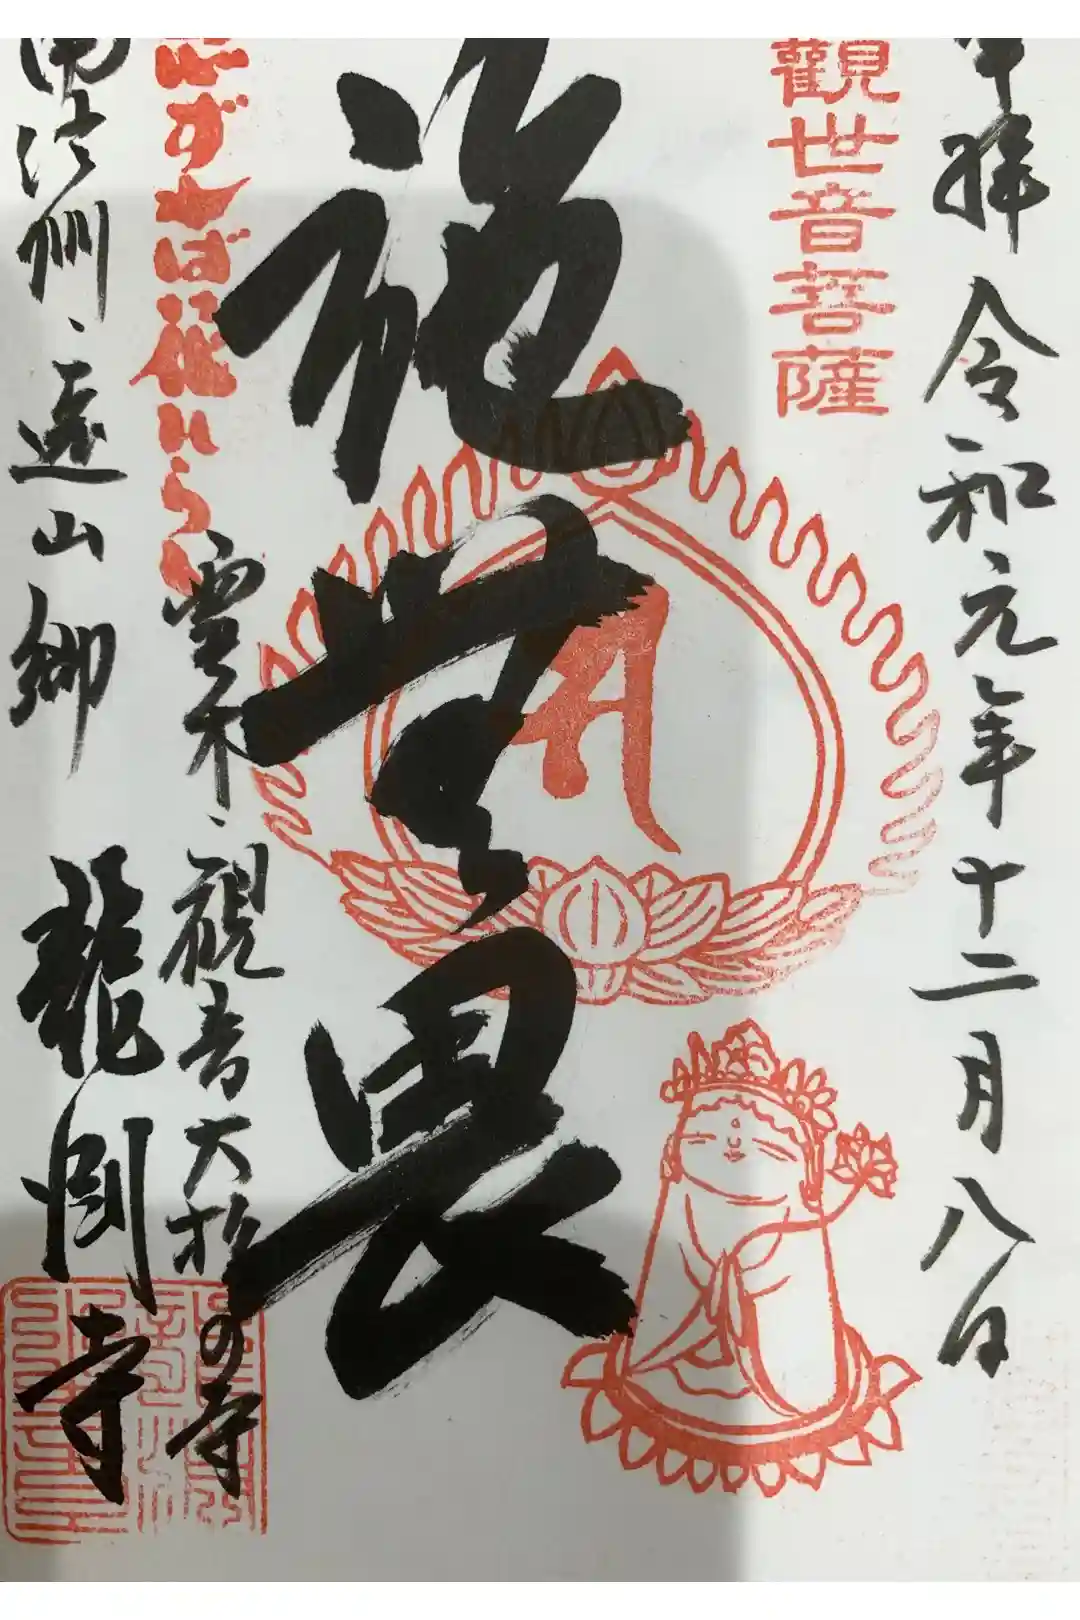 拝 令和元年十二月八日
觀世音菩薩
施無畏
ずかば花ひらく
霊木、観音大杉の寺
信州、遠山郷 龍淵寺